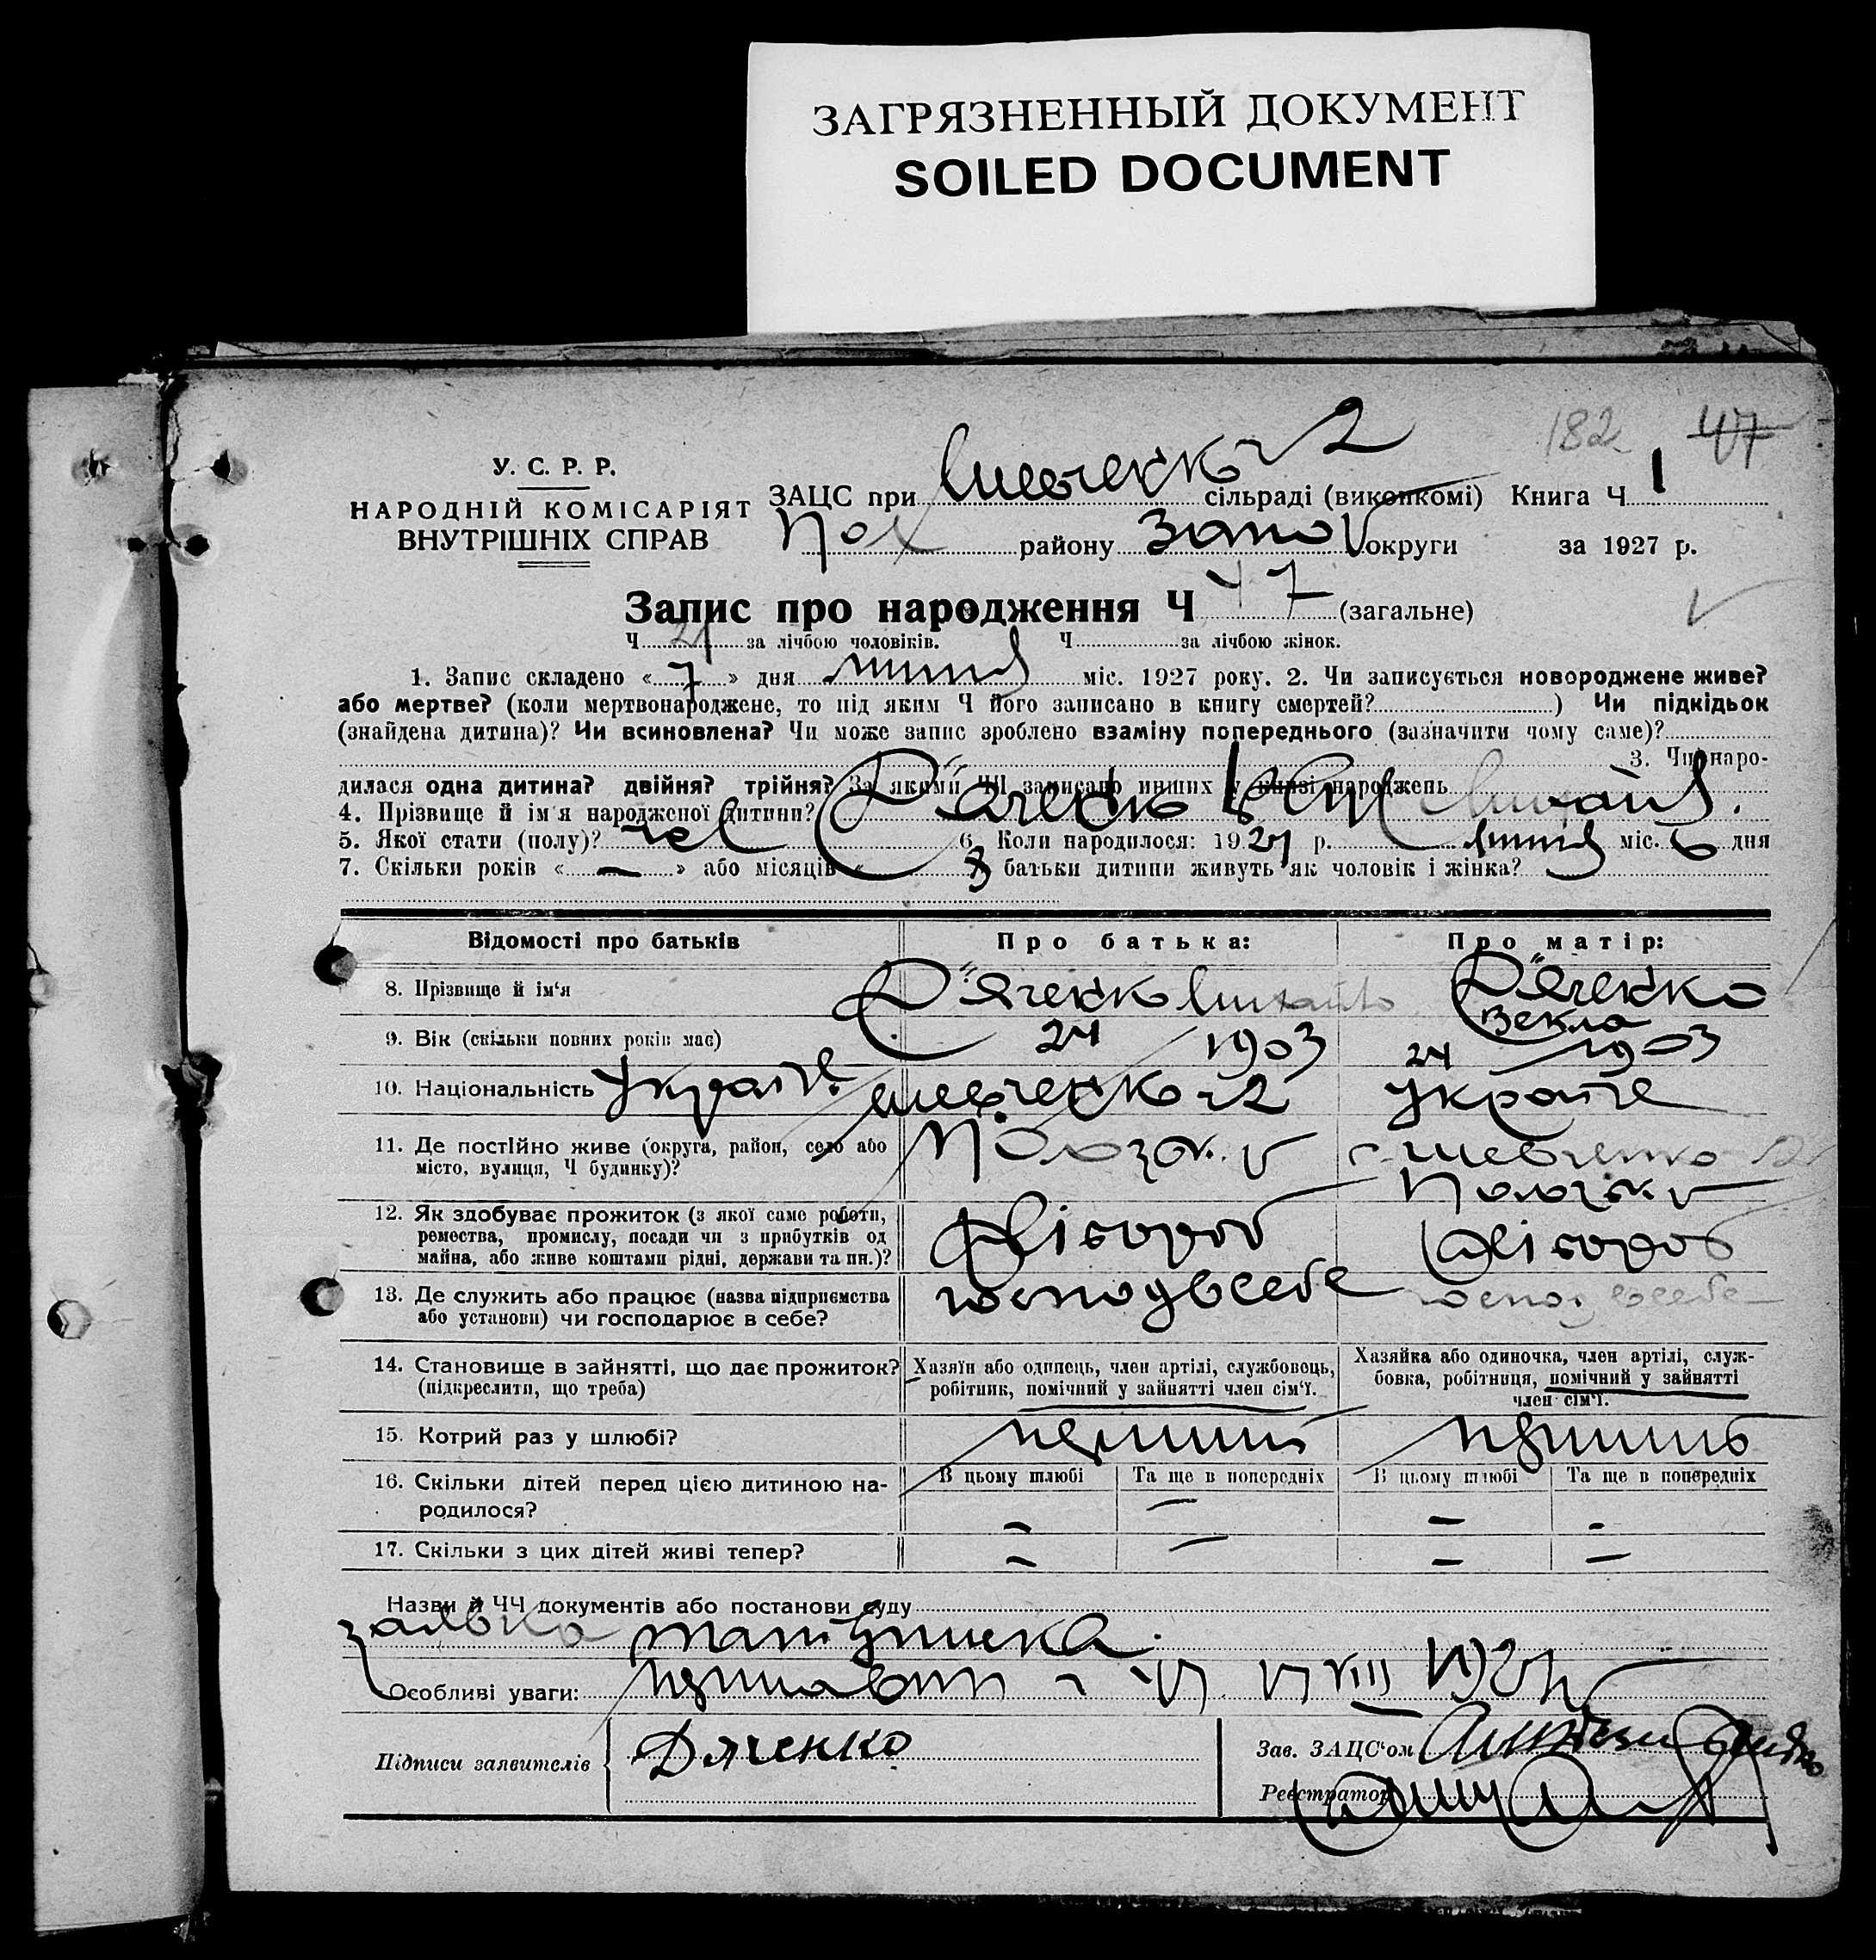 ЗАГРЯЗНЕННЫЙ ДОКУМЕНТ
SOILED DOCUMENT
182 47
У. С. Р. Р.
НАРОДНІЙ КОМІСАРІЯТ
ВНУТРІШНІХ СПРАВ
ЗАЦС при Шевченко 2 сільраді (виконкомі) Книга Ч 1
Пол району Запор округи за 1927 р.
Запис про народження Ч 47 (загальне)
Ч 21 за лічбою чоловіків. Ч за лічбою жінок.
1. Запис складено «7» дня липня міс. 1927 року. 2. Чи записується новороджене живе?
або мертве? (коли мертвонароджене, то під яким Ч його записано в книгу смертей? ) Чи підкідьок
(знайдена дитина)? Чи всиновлена? Чи може запис зроблено взаміну попереднього (зазначити чому саме)?
3. Чи наро-
дилася одна дитина? двійня? трійня? За якими ЧЧ записано инших у книзі народжень
4. Прізвище й ім'я народженої дитини? Д'яченко
5. Якої стати (полу)? чол 6. Коли народилося: 1927 р. липня міс. 6 дня
7. Скільки років «—» або місяців « 8 батьки дитини живуть як чоловік і жінка?
Відомості про батьків Про батька: Про матір:
8. Прізвище й ім'я Д'яченко Михайло Д'яченко Векла
9. Вік (скільки повних років має) 24 1903 24 1903
10. Національність Україн. Шевченко 2 Украінс
11. Де постійно живе (округа, район, село або
місто, вулиця, Ч будинку)? Пологов. с. Шевченко 2 Пологов.
12. Як здобуває прожиток (з якої саме роботи,
ремества, промислу, посади чи з прибутків од
майна, або живе коштами рідні, держави та ин.)? Хлібороб Хлібороб
13. Де служить або працює (назва підприємства
або установи) чи господарює в себе?
14. Становище в зайнятті, що дає прожиток?
(підкреслити, що треба)
Хазяїн або одинець, член артілі, службовець,
робітник, помічний у зайнятті член сім'ї.
Хазяйка або одиночка, член артілі, служ-
бовка, робітниця, помічний у зайнятті
член сім'ї.
15. Котрий раз у шлюбі? перший перший
16. Скільки дітей перед цією дитиною на-
родилося?
В цьому шлюбі Та ще в попередніх В цьому шлюбі Та ще в попередніх
— — — —
17. Скільки з цих дітей живі тепер? — — — —
Назви й ЧЧ документів або постанови суду
заявка
Особливі уваги: VIII 1927
Підписи заявителів Дяченко
Зав. ЗАЦС'ом
Реєстратор